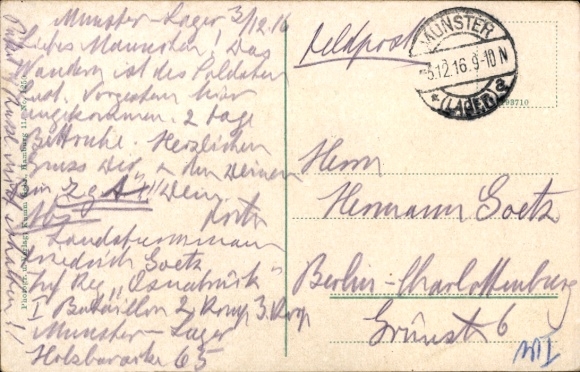 Munster-Lager 3/12.16
Liebes Mannsten! Das
Wandern ist des Soldaten
Lust. Vorgestern hier
angekommen. 2 Tage
Bettruhe. Herzlichen
Gruss Dir u. den Deinen
Dein
Abs
Landsturmmann
Friedrich Goetz
Inf Reg. „Osnabrück"
I Bataillon 2 Komp. 3. Korp
Munster-Lager
Holzbaracke 65
Feldpost
MUNSTER
12.16. 9-10 N
* (LAGER) a
Herrn
Hermann Goetz
Berlin-Charlottenburg
Grünestr 6